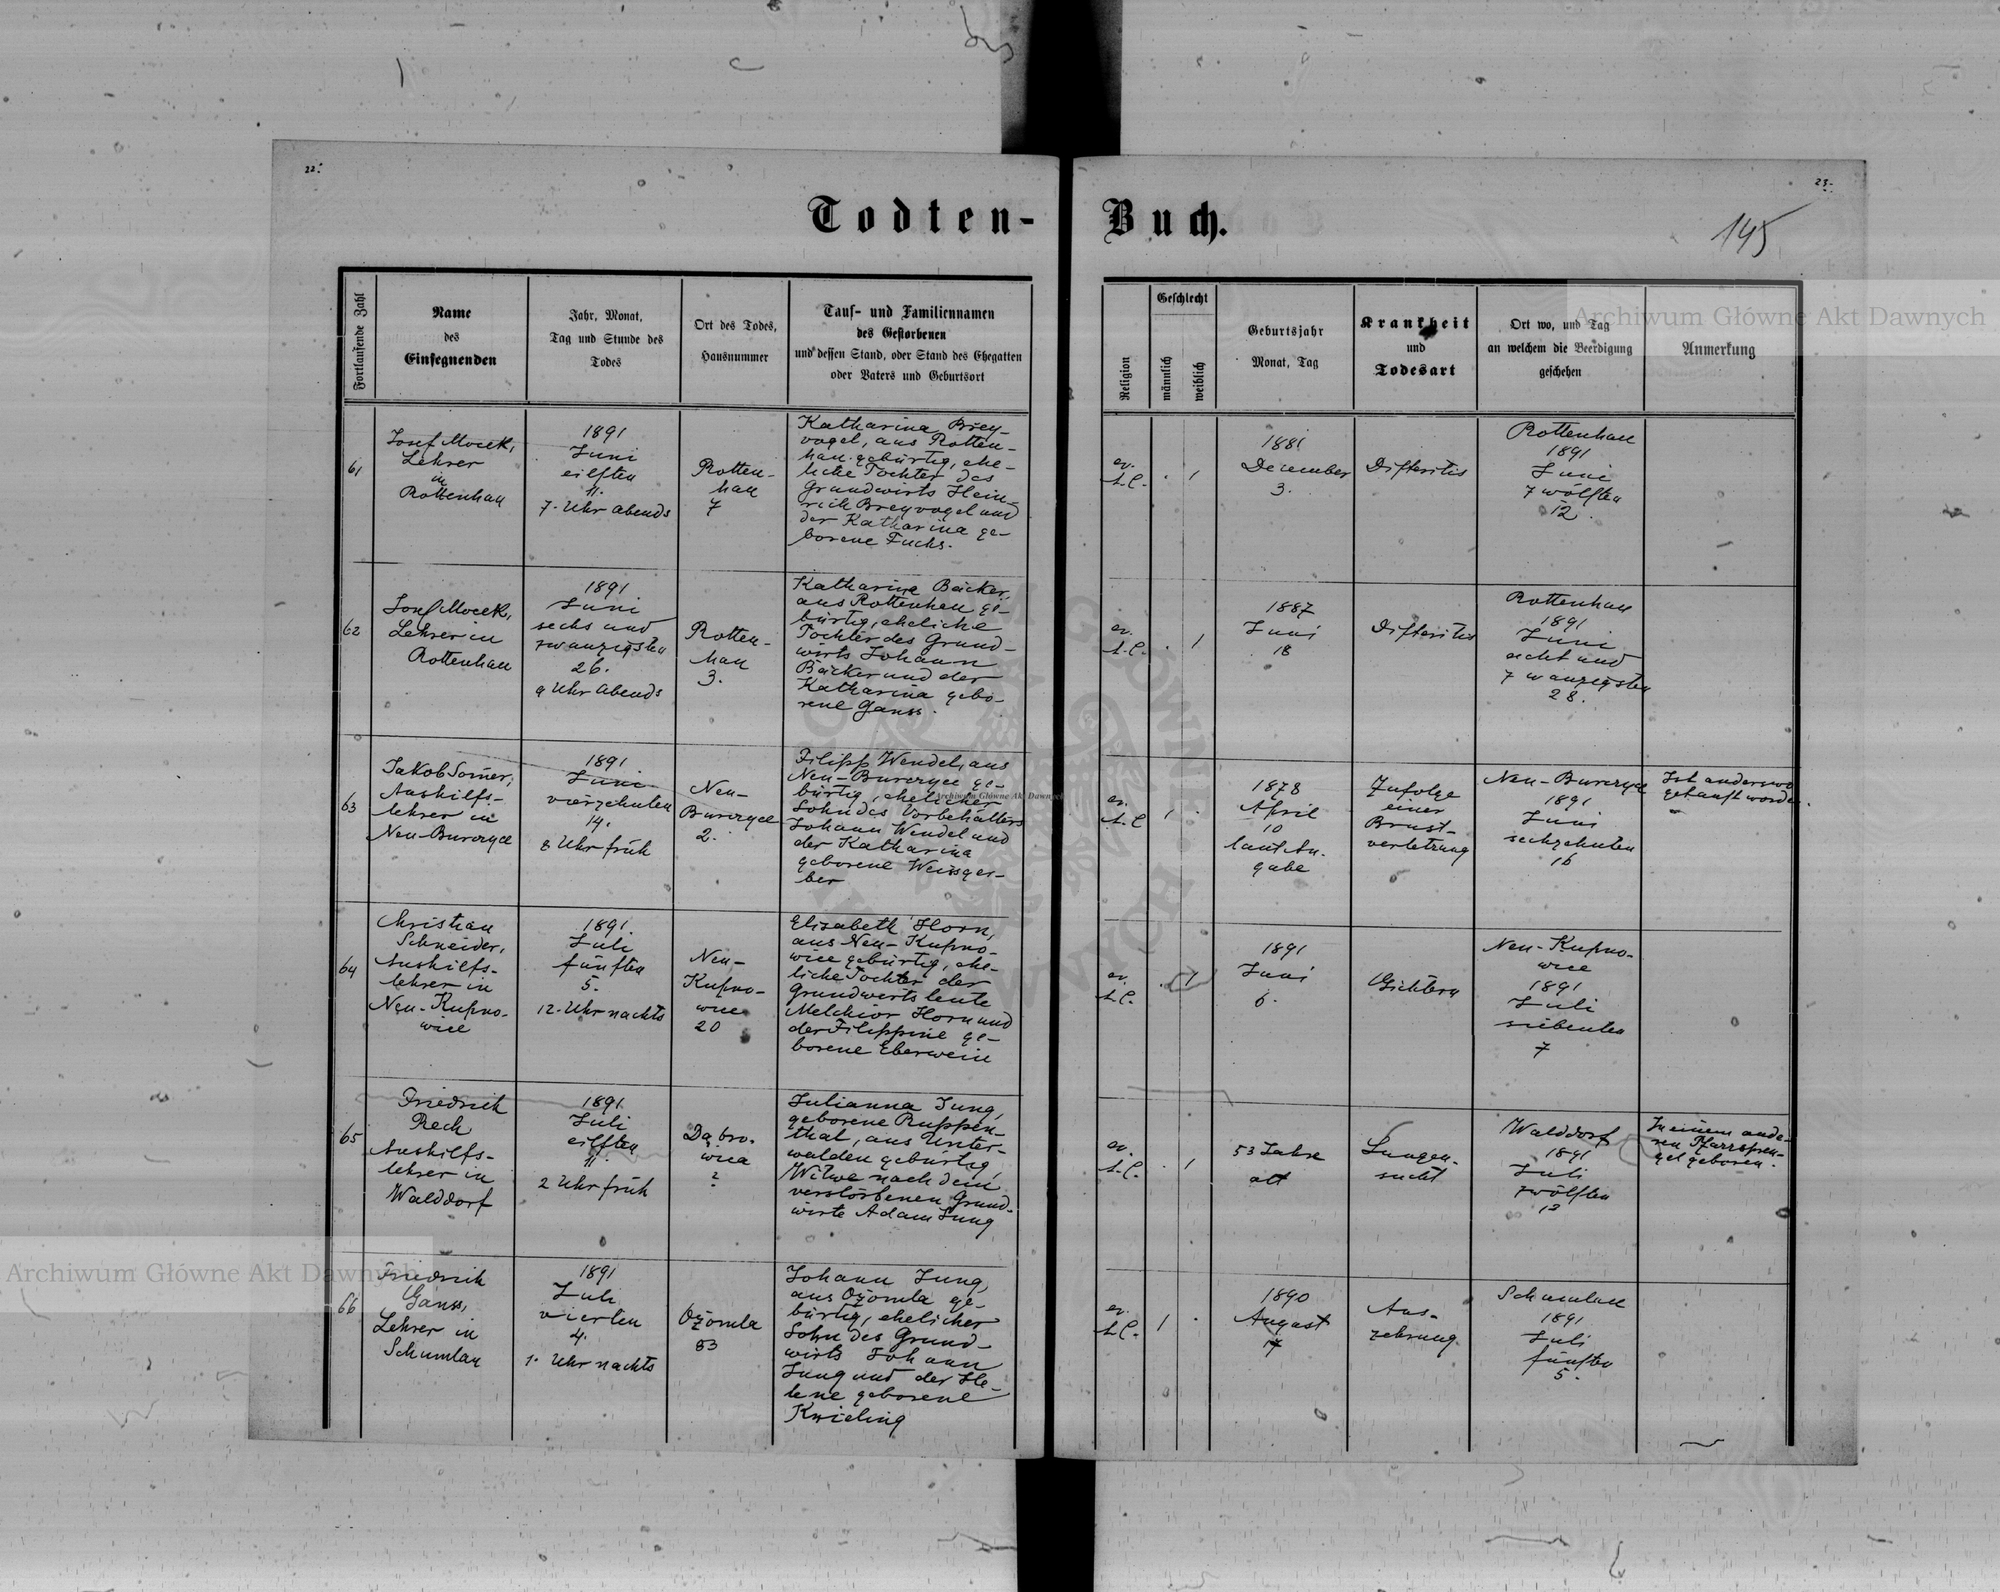 22.
23.
Todten-
Buch.
145
Fortlaufende Zahl
Name
des
Einsegnenden
Jahr, Monat,
Tag und Stunde des
Todes
Ort des Todes,
Hausnummer
Tauf- und Familiennamen
des Gestorbenen
und dessen Stand, oder Stand des Ehegatten
oder Vaters und Geburtsort
Religion
Geschlecht
männlich
weiblich
Geburtsjahr
Monat, Tag
Krankheit
und
Todesart
Ort wo, und Tag
an welchem die Beerdigung
geschehen
Anmerkung
61
Josef Mocek,
Lehrer
in
Rottenhan
1891
Juni
eilften
11.
7. Uhr abends
Rotten-
han
7
Katharina Brey-
vogel, aus Rotten-
han gebürtig, ehe-
liche Tochter des
Grundwirts Hein-
rich Breyvogel und
der Katharina ge-
borene Fuchs.
ev.
A.C.
. 1
1881
December
3.
Difteritis
Rottenhan
1891
Juni
zwölften
12.
62
Josef Mocek,
Lehrer in
Rottenhan
1891
Juni
sechs und
zwanzigsten
26.
9 Uhr Abends
Rotten-
han
3.
Katharina Bäcker,
aus Rottenhan ge-
bürtig, eheliche
Tochter des Grund-
wirts Johann
Bäcker und der
Katharina gebo-
rene Ganss.
ev.
A.C.
. 1
1887
Juni
18
Difteritis
Rottenhan
1891
Juni
acht und
zwanzigsten
28.
63
Jakob Somer,
Aushilfs-
lehrer in
Neu-Burczyce
1891
Juni
vierzehnten
14.
8 Uhr früh
Neu-
Burczyce
2.
Filipp Wendel, aus
Neu-Burczyce ge-
bürtig, ehelicher
Sohn des Vorbehalters
Johann Wendel und
der Katharina
geborene Weissger-
ber
ev.
A.C
1 .
1878
April
10
laut An-
gabe
Zufolge
einer
Brust-
verletzung
Neu-Burczyce
1891
Juni
sechzehnten
16
Ist anderswo
getauft worden.
64
Christian
Schneider,
Aushilfs-
lehrer in
Neu-Kupno-
wice
1891.
Juli
fünften
5.
12. Uhr nachts
Neu-
Kupno-
wice
20
Elisabeth Horn,
aus Neu-Kupno-
wice gebürtig, ehe-
liche Tochter der
Grundwirtsleute
Melchior Horn und
der Filippine ge-
borene Eberwein
ev.
A.C.
. 1
1891
Juni
6.
Gichtern
Neu-Kupno-
wice
1891
Juli
siebenten
7
65
Friedrich
Rech
Aushilfs-
lehrer in
Walddorf
1891
Juli
eilften
11.
2 Uhr früh
Dąbro-
wica
?
Julianna Jung,
geborene Ruppen-
thal, aus Unter-
walden gebürtig,
Witwe nach dem
verstorbenen Grund-
wirte Adam Jung
ev.
A.C.
. 1
53 Jahre
alt
Lungen-
sucht
Walddorf
1891
Juli
zwölften
12
In einem ande-
ren Pfarrspren-
gel geboren.
66
Friedrich
Ganss,
Lehrer in
Schumlau
1891
Juli
vierten
4.
1. Uhr nachts
Ożomla
53
Johann Jung,
aus Ożomla ge-
bürtig, ehelicher
Sohn des Grund-
wirts Johann
Jung und der He-
lene geborene
Knieling
ev.
A.C.
1 .
1890
August
Aus-
zehrung
Schumlau
1891
Juli
fünften
5.
Archiwum Główne Akt Dawnych
Archiwum Główne Akt Dawnych
Archiwum Główne Akt Dawnych